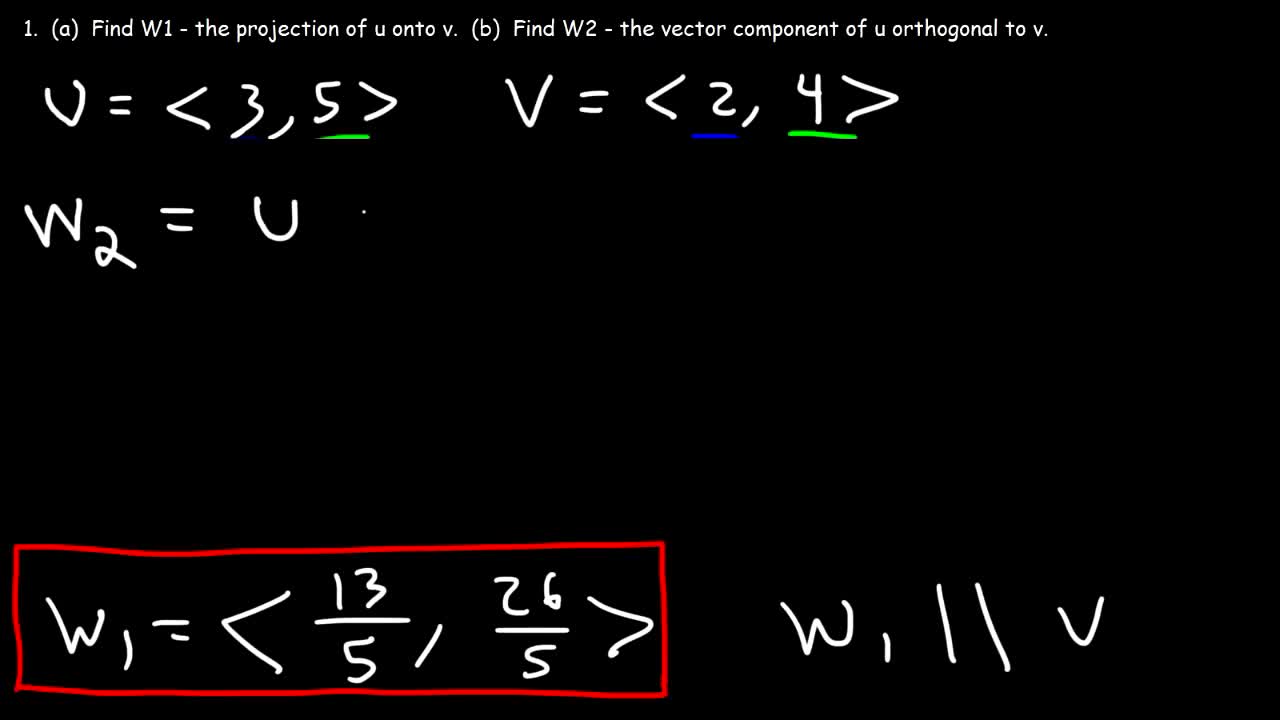 1. (a) Find W1 - the projection of u onto v. (b) Find W2 - the vector component of u orthogonal to v.
U = < 3, 5 > V = < 2, 4 >
W₂ = U
W₁ = < 13/5, 26/5 > W₁ || V